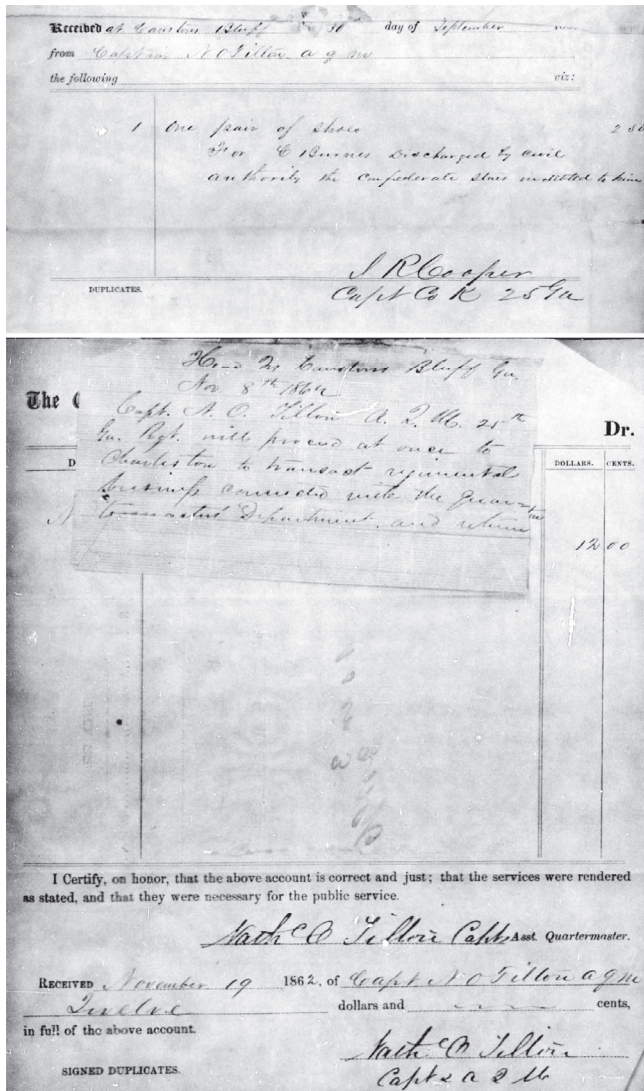 Received at Caustons Bluff 30 day of September
from Captain N O Tillou a q m
the following viz:
1 One pair of shoes 2 50
For C Burnes Discharged by civil
authority the confederate states indebted to him
Cooper
DUPLICATES.
Capt Co K 25 Ga
Head Qrs Caustons Bluff Ga
Nov 8th 1862
The C
Capt. N. O. Tillou A. Q. M. 25th
Dr.
Ga. Rgt. will proceed at once to
Charleston to transact regimental
DOLLARS. CENTS.
business connected with the Quar-
termasters Department and return
12 00
I Certify, on honor, that the above account is correct and just; that the services were rendered
as stated, and that they were necessary for the public service.
Nathl O Tillou Capt Asst. Quartermaster.
RECEIVED November 19 1862, of Capt N O Tillou a q m
Twelve dollars and cents,
in full of the above account.
Nathl O Tillou
SIGNED DUPLICATES.
Capt & A Q M